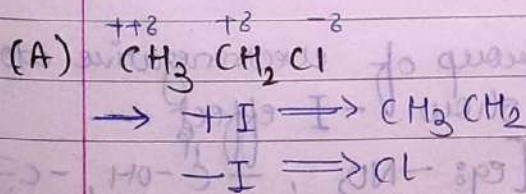 ++δ +δ -δ
(A) CH3 CH2 Cl
→ +I ⟹ CH3 CH2
-I ⟹ Cl